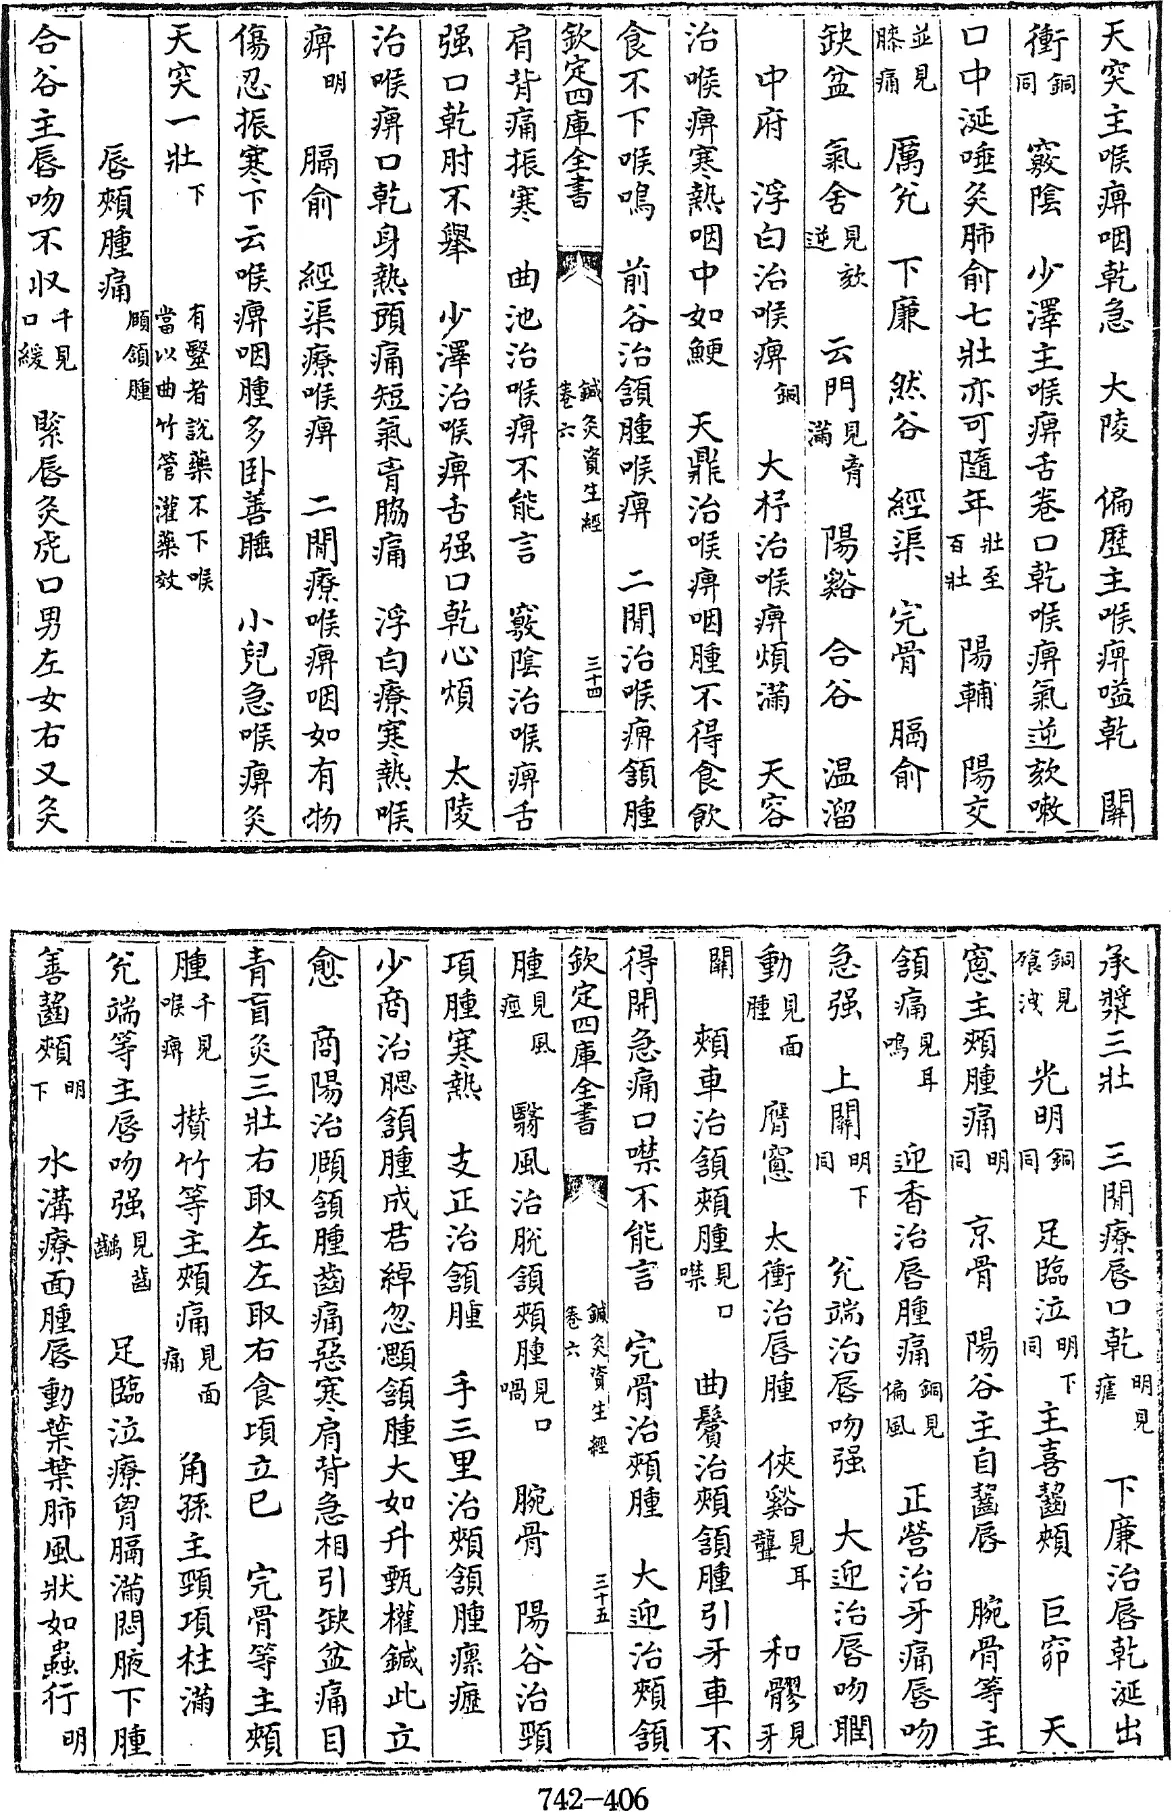 天突主喉痹咽乾急　大陵　偏歷主喉痹嗌乾　關
衝銅同　竅陰　少澤主喉痹舌卷口乾喉痹氣逆欬嗽
口中涎唾灸肺俞七壯亦可隨年壯至百壯　陽輔　陽交
並見膝痛　厲兊　下廉　然谷　經渠　完骨　膈俞
缺盆　氣舍見欬逆　云門見膏滿　陽谿　合谷　温溜
中府　浮白治喉痹銅　大杼治喉痹煩滿　天容
治喉痹寒熱咽中如鯁　天鼎治喉痹咽腫不得食飲
食不下喉鳴　前谷治頷腫喉痹　二閒治喉痹頷腫
欽定四庫全書　鍼灸資生經卷六　三十四
肩背痛振寒　曲池治喉痹不能言　竅陰治喉痹舌
强口乾肘不舉　少澤治喉痹舌强口乾心煩　太陵
治喉痹口乾身熱頭痛短氣膏脇痛　浮白療寒熱喉
痹明　膈俞　經渠療喉痹　二閒療喉痹咽如有物
傷忍振寒下云喉痹咽腫多卧善睡　小兒急喉痹灸
天突一壯下　有醫者說藥不下喉當以曲竹管灌藥效
唇頰腫痛頤頷腫
合谷主唇吻不收千見口緩　緊唇灸虎口男左女右又灸
承漿三壯　三閒療唇口乾明見瘧　下廉治唇乾涎出
銅見飱洩　光明銅同　足臨泣明下同　主喜齧頰　巨窌　天
窻主頰腫痛明同　京骨　陽谷主自齧唇　腕骨等主
頷痛見耳鳴　迎香治唇腫痛銅見偏風　正營治牙痛唇吻
急强　上關明下同　兊端治唇吻强　大迎治唇吻瞤
動見面腫　膺窻　太衝治唇腫　俠谿見耳聾　和髎見牙
關　頰車治頷頰腫見口噤　曲鬢治頰頷腫引牙車不
得開急痛口噤不能言　完骨治頰腫　大迎治頰頷
欽定四庫全書　鍼灸資生經卷六　三十五
腫見風痙　翳風治脫頷頰腫見口喎　腕骨　陽谷治頸
項腫寒熱　支正治頷腫　手三里治頰頷腫瘰癧
少商治腮頷腫成君綽忽顋頷腫大如升甄權鍼此立
愈　商陽治頤頷腫齒痛惡寒肩背急相引缺盆痛目
青盲灸三壯右取左左取右食頃立已　完骨等主頰
腫千見喉痹　攅竹等主頰痛見面痛　角孫主頸項柱滿
兊端等主唇吻强見齒齲　足臨泣療胷膈滿悶腋下腫
善齧頰明下　水溝療面腫唇動葉葉肺風狀如蟲行明
742-406